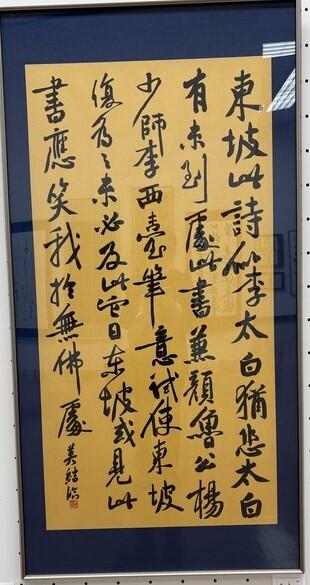 東坡此詩似李太白猶恐太白
有未到處此書兼顏魯公楊
少師李西臺筆意試使東坡
復為之未必及此它日東坡或見此
書應笑我於無佛處
臨